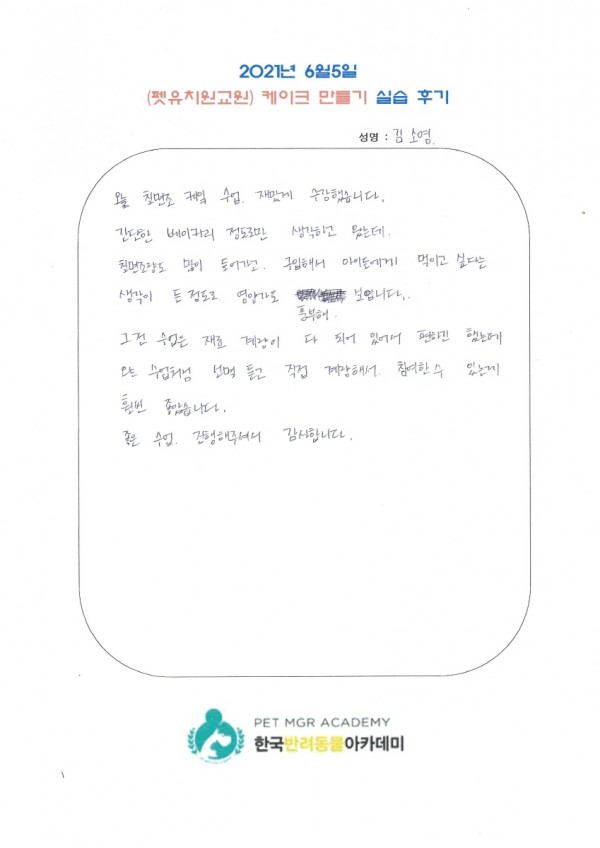 2021년 6월5일
(펫유치원교원) 케이크 만들기 실습 후기
성명 : 김소염
오늘 칠면조 케익 수업. 재밌게 수강했습니다.
간단한 베이커리 정도로만 생각하고 왔는데.
칠면조양도 많이 들어가고. 구입해서 아이들에게 먹이고 싶다는
생각이 든 정도로 영양가도 보입니다.
풍부해.
그전 수업은 재료 계량이 다 되어 있어서 편하긴 했는데
오늘 수업처럼 설명 듣고 직접 계량해서 참여할 수 있는게
훨씬 좋았습니다.
좋은 수업. 진행해주셔서 감사합니다.
PET MGR ACADEMY
한국반려동물아카데미